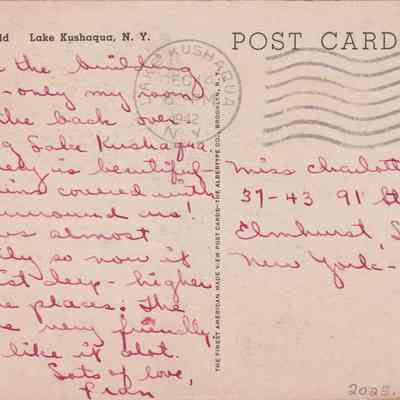 ld Lake Kushaqua, N. Y.
POST CARD
LAKE KUSHAQUA
DEC 4
1942
N. Y.
the building
- only my
the back over
Lake Kushaqua.
is beautiful-
covered with
surround us!
almost
so now it
deep - higher
places. The
very friendly,
like it alot.
Lots of love,
Fran
THE FINEST AMERICAN MADE VIEW POST CARDS—THE ALBERTYPE CO., BROOKLYN, N.Y.
Miss Charlott
37-43 91 St
Elmhurst,
New York-
2023.